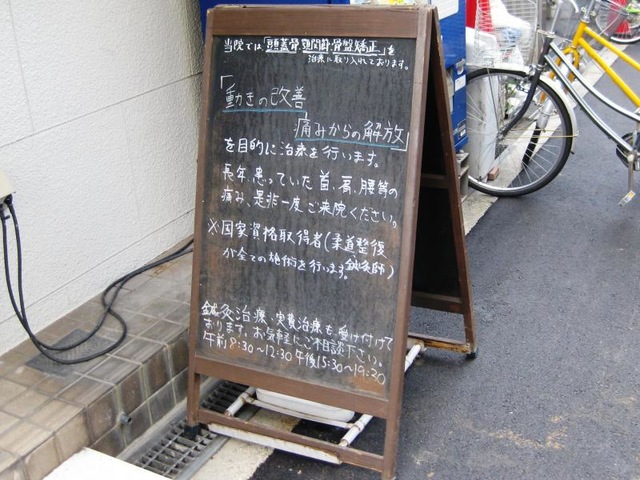 当院では「頭蓋骨、顎関節・骨盤矯正」を
治療に取り入れております。
「動きの改善
痛みからの解放」
を目的に治療を行います。
長年、患っていた首、肩、腰等の
痛み、是非一度ご来院ください。
※国家資格取得者(柔道整復
鍼灸師)
が全ての施術を行います。
鍼灸治療、実費治療も受け付けて
おります。お気軽にご相談下さい。
午前8:30～12:30 午後15:30～19:30